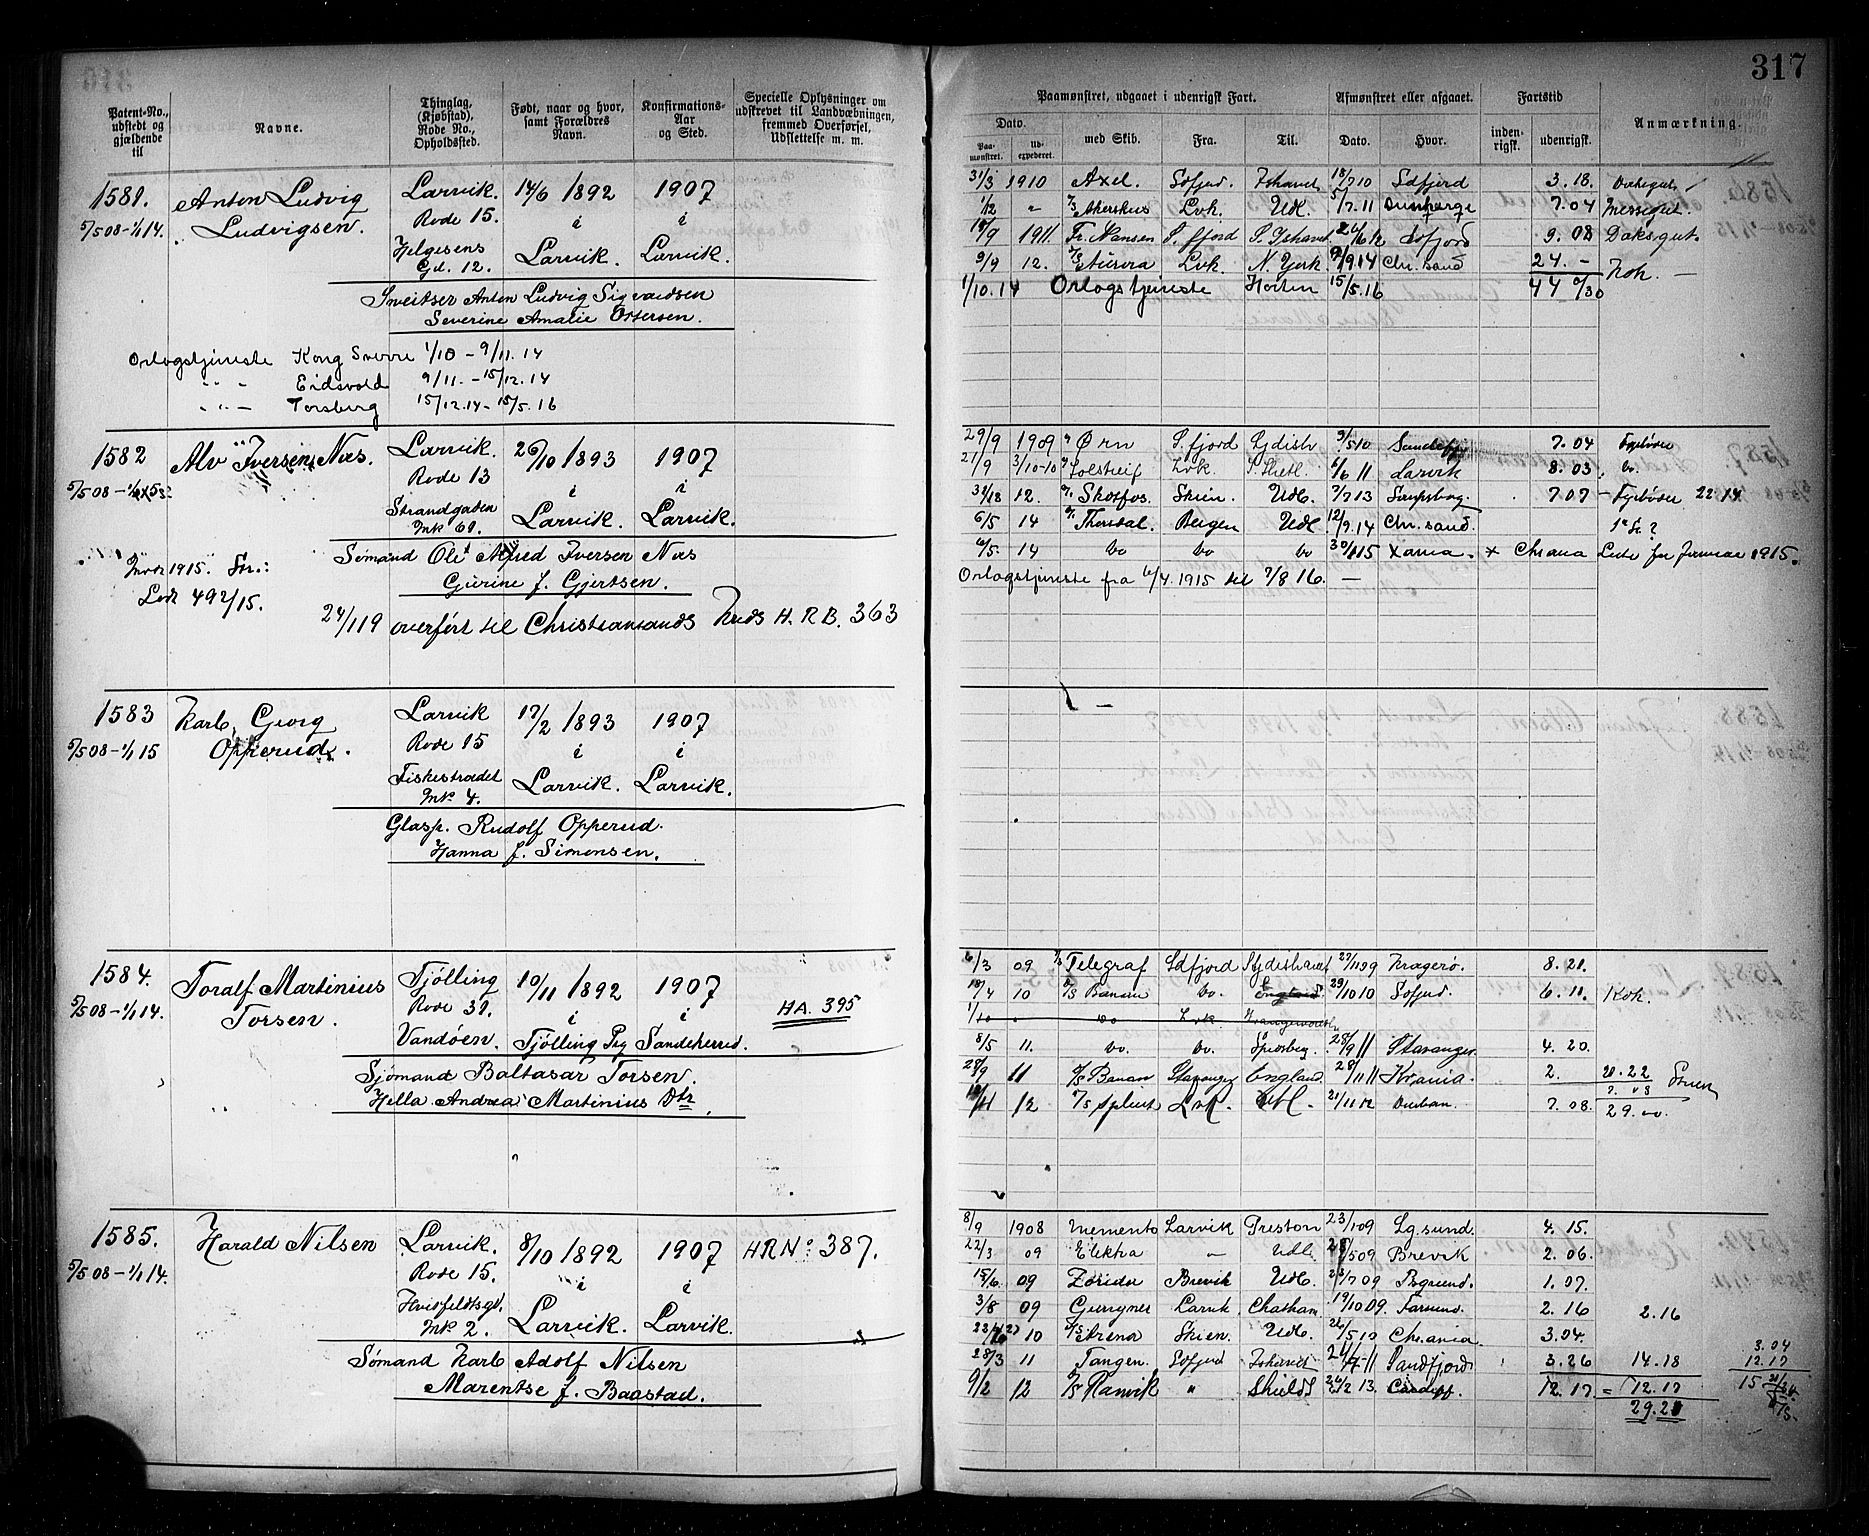 317
Patent-No., udstedt og gjældende til
Navne.
Thinglag, (Kjøbstad), Rode No., Opholdssted.
Født, naar og hvor, samt Forældres Navn.
Konfirmations-Aar og Sted.
Specielle Oplysninger om udskrevet til Landværningen, fremmed Overførsel, Udslettelse m. m.
Paamønstret, udgaaet i udenrigsk Fart.
Afmønstret eller afgaaet.
Fartstid
Anmærkning.
Dato.
Paa-mønstret.
Ud-expederet.
med Skib.
Fra.
Til.
Dato.
Hvor.
inden-rigsk.
udenrigsk.
1581. Anton Ludvig Larvik. 14/6 1892 1907
5/5 08 - 1/1 14. Ludvigsen. Rode 15. i i
Helgesens Gd. 12. Larvik. Larvik.
Sveitser Anton Ludvig Sigvardsen
Severine Amalie Ottersen.
Orlogstjineste Kong Sverre 1/10 - 9/11. 14
" - Eidsvold 9/11. - 15/12. 14
" - Torsberg 15/12. 14 - 15/5. 16
31/3 1910 Axel. Sdfjord. Ishavet 18/7 10 Sdfjord 3. 18.
1/12 " Akershus Lvk. Udl. 5/7. 11 7. 04 Messegut.
1911. Fr. Nansen S. fjord S. Ishavet 9. 08 Daksgut.
9/9 12. Aurora Lvk. N. York. 9. 14 Chr. sand 24. - Kok. -
1/10. 14 Orlogstjineste Horten 15/5. 16 44
1582 Alv Iversen Næs. Larvik. 26/10 1893 1907
5/5 08 - Rode 13 i i
Strandgaden Mk 61. Larvik. Larvik.
Sømand Ole Alfred Iversen Næs
Gurine f. Gjertsen.
1915.
492/15.
24/1 19 overført til Christiansands Kreds H. R. B. 363
29/9 1909 Ørn S. fjord Sydish 9/5 10 7. 04 Fyrbøder
21/9 3/10-10 Solstreif Lvk. 6/6 11 Larvik 8. 03 do.
12. Skotfos. Skien. Udl. 7/7 13 Sarpsborg. 7 07 - Fyrbøder 22. 14
6/5 14 Thorsdal. Bergen Udl 12/9. 14 Chr. sand.
6/5. 14 do do do 30/1 15 Xania. x Chrania Liste for Januar 1915.
Orlogstjineste fra 6/4. 1915 til 7/8 16. -
1583 Karl Georg Larvik 17/2 1893 1907
5/5 08 - 1/1 15 Opperud. Rode 15 i i
Fiskestrædet Mk. 4. Larvik. Larvik.
Glasp. Rudolf Opperud.
Hanna f. Simensen.
1584. Toralf Martinius Tjølling 10/11 1892 1907
5/5 08 - 1/1 14. Torsen. Rode 31. i i HA. 395
Vandøen. Tjølling Pg Sandeherred.
Sjømand Baltasar Torsen.
Hella Andrea Martinius Dtr.
6/3 09 Telegraf Sdfjord Sydishavet 27/11 09 Kragerø. 8. 21.
18/4 10 D/S Banan do. England 29/10 10 Sdfjord. 6. 11. Kok.
1/10 " do Lvk.
8/5 11. do. do. Spidsberg. 28/9 11 Stavanger 4. 20.
28/9 11 D/S Banan Stavanger England. 28/11 11 Krania. 2. 20. 22
12 D/S Splint Lvk. Udl. 21/11 12 Durban. 7. 08. 29. 00.
1585. Harald Nilsen Larvik. 8/10 1892 1907 HR No 387.
5/5 08 - 1/1 14. Rode 15. i i
Hvidfeldtsgd. Mk 2. Larvik. Larvik.
Sømand Karl Adolf Nilsen
Marentse f. Baastad.
8/9 1908 Memento Larvik Preston 23/1 09 Lg. sund. 4. 15.
22/3 09 Elektra " Udl. 28/5 09 Brevik 2. 06.
15/6 09 Zorida Brevik Udl. 7 09 Psgrund. 1. 07.
3/8 09 Larvik Chatham. 19/10 09. Farsund. 2. 16 2. 16
10 Skien. Udl. 26/5 10 Chr.ania. 3. 04.
28/3 11 Tangen. Sdfjord Ishavet 11 Sandfjord 3. 26 14. 18
3. 04
12. 17
9/2 12 D/S Ranvik " Shields 26/2 13. Cardiff. 12. 17 = 12. 17
29. 21